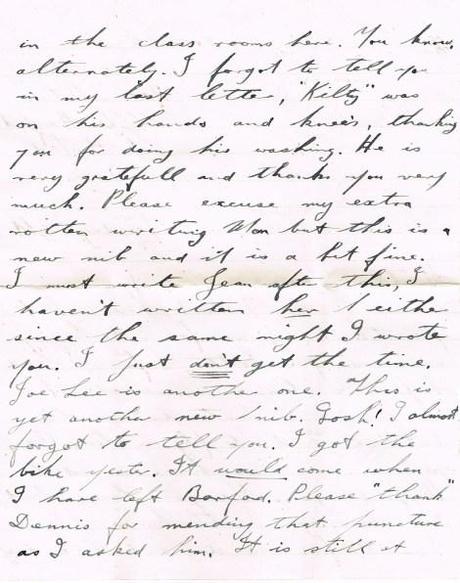 in the class rooms here. You know,
alternately. I forgot to tell you
in my last letter, "Kilty" was
on his hands and knees, thanking
you for doing his washing. He is
very gratefull and thanks you very
much. Please excuse my extra
rotten writing Mam but this is a
new nib and it is a bit fine.
I must write Jean after this, I
haven't written her either
since the same night I wrote
you. I just don't get the time.
Joe Lee is another one. This is
yet another new nib. Gosh! I almost
forgot to tell you. I got the
bike yester. It would come when
I have left Barford. Please "thank"
Dennis for mending that puncture
as I asked him. It is still at